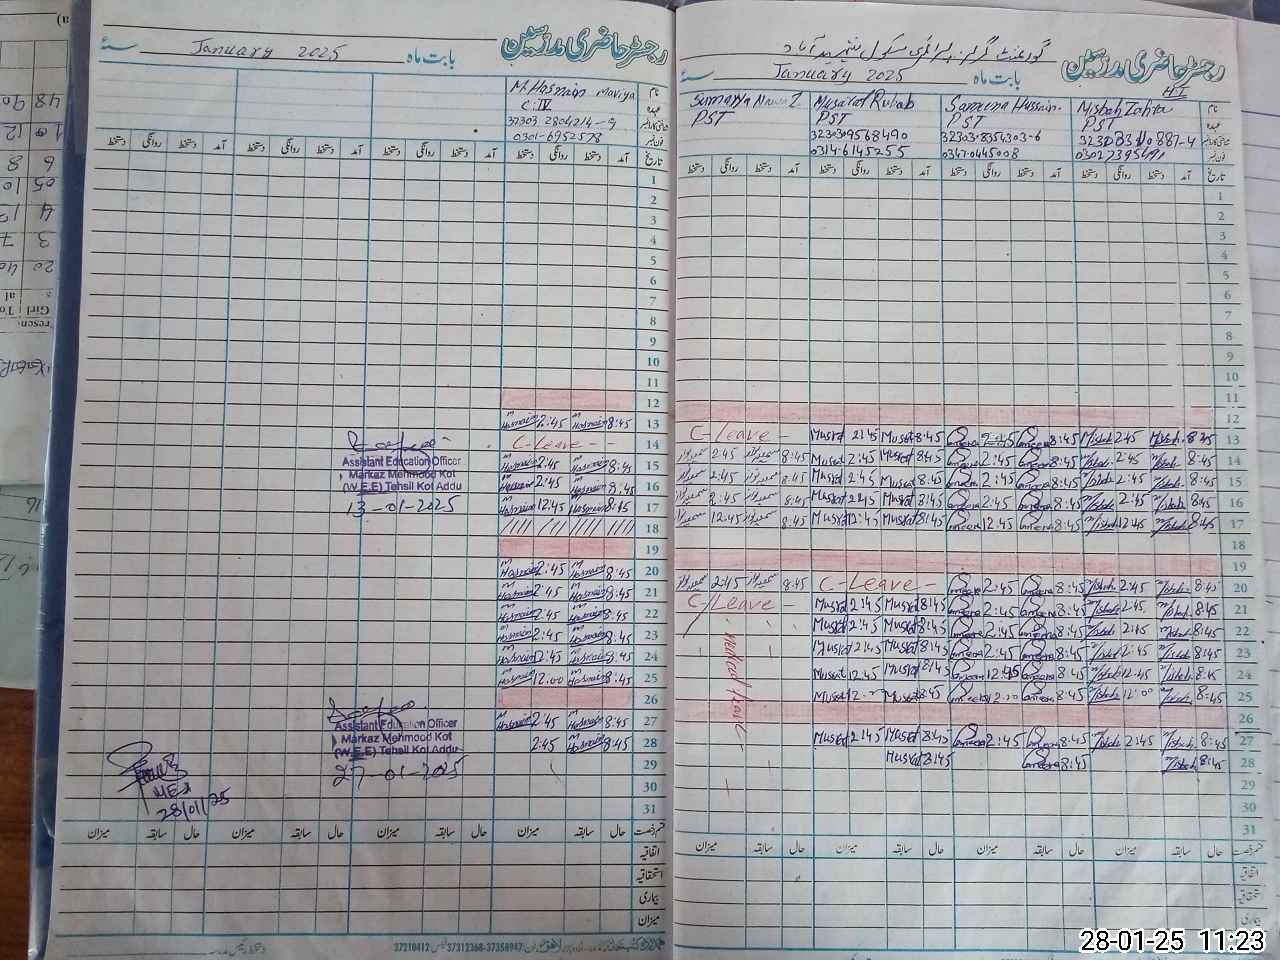 رجسٹر حاضری مدرسین
بابت ماہ January 2025 سنہ
M. Hasnain Maviya
C-IV
0301-6952578
آمد دستخط روانگی دستخط آمد دستخط روانگی دستخط آمد دستخط روانگی دستخط آمد دستخط روانگی دستخط
تاریخ
1
2
3
4
5
6
7
8
9
10
11
12
13 8:45 Hasnain 2:45 Hasnain
14 C-Leave -
15 8:45 Hasnain 2:45 Hasnain
16 8:45 Hasnain 2:45 Hasnain
17 8:45 Hasnain 12:45 Hasnain
18
19
20 8:45 Hasnain 2:45 Hasnain
21 8:45 Hasnain 2:45 Hasnain
22 8:45 Hasnain 2:45 Hasnain
23 8:45 Hasnain 2:45 Hasnain
24 8:45 Hasnain 2:45 Hasnain
25 8:45 Hasnain 12:00 Hasnain
26
27 8:45 Hasnain 2:45 Hasnain
28 8:45 Hasnain 2:45
29
30
31
Assistant Education Officer
Markaz Mehmood Kot
(W.E.E) Tehsil Kot Addu
13-01-2025
Assistant Education Officer
Markaz Mehmood Kot
(W.E.E) Tehsil Kot Addu
27-01-2025
MEA
28/01/25
حال سابقہ میزان حال سابقہ میزان حال سابقہ میزان حال سابقہ میزان
اتفاقیہ
استحقاقیہ
بیماری
میزان
37210412 37312368-37358947
رجسٹر حاضری مدرسین
بابت ماہ January 2025 سنہ
Misbah Zahra
PST
03027395691
Sameena Hussain
PST
32303-8354303-6
0347-0445008
Musarat Rubab
PST
0314-6145255
Sumayya
PST
آمد دستخط روانگی دستخط آمد دستخط روانگی دستخط آمد دستخط روانگی دستخط آمد دستخط روانگی دستخط
تاریخ
1
2
3
4
5
6
7
8
9
10
11
12
13 8:45 Misbah 2:45 Misbah 8:45 Sameena 2:45 Sameena 8:45 Musrat 2:45 Musrat C-Leave -
14 8:45 Misbah 2:45 Misbah 8:45 Sameena 2:45 Sameena 8:45 Musrat 2:45 Musrat 8:45 2:45
15 8:45 Misbah 2:45 Misbah 8:45 Sameena 2:45 Sameena 8:45 Musrat 2:45 Musrat 8:45 2:45
16 8:45 Misbah 2:45 Misbah 8:45 Sameena 2:45 Sameena 8:45 Musrat 2:45 Musrat 8:45 2:45
17 8:45 Misbah 12:45 Misbah 8:45 Sameena 12:45 Sameena 8:45 Musrat 12:45 Musrat 8:45 12:45
18
19
20 8:45 Misbah 2:45 Misbah 8:45 Sameena 2:45 Sameena C-Leave - 8:45 2:45
21 8:45 Misbah 2:45 Misbah 8:45 Sameena 2:45 Sameena 8:45 Musrat 2:45 Musrat C/Leave -
22 8:45 Misbah 2:45 Misbah 8:45 Sameena 2:45 Sameena 8:45 Musrat 2:45 Musrat
23 8:45 Misbah 2:45 Misbah 8:45 Sameena 2:45 Sameena 8:45 Musrat 2:45 Musrat
24 8:45 Misbah 12:45 Misbah 8:45 Sameena 12:45 Sameena 8:45 Musrat 12:45 Musrat
25 8:45 Misbah 12:00 Misbah 8:45 Sameena 12:00 Sameena 8:45 Musrat Musrat
26
27 8:45 Misbah 2:45 Misbah 8:45 Sameena 2:45 Sameena 8:45 Musrat 2:45 Musrat
28 8:45 Misbah 8:45 Sameena 8:45 Musrat
29
30
31
حال سابقہ میزان حال سابقہ میزان حال سابقہ میزان حال سابقہ میزان
اتفاقیہ
استحقاقیہ
بیماری
28-01-25 11:23